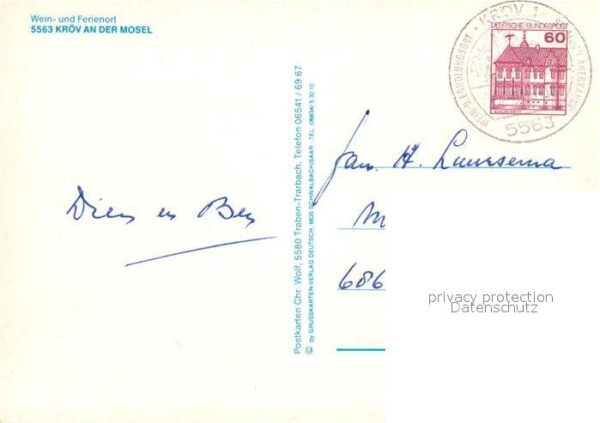 Wein- und Ferienort
5563 KRÖV AN DER MOSEL
KRÖV
DEUTSCHE BUNDESPOST
60
5563
Postkarten Chr. Wolf, 5580 Traben-Trarbach, Telefon 06541 / 69 67
© by GRUSSKARTEN-VERLAG DEUTSCH, 6635 SCHWALBACH/SAAR · TEL. (06834) 5 30 10
Fam. H. Luursema
M
686
Dien en Ben
privacy protection
Datenschutz